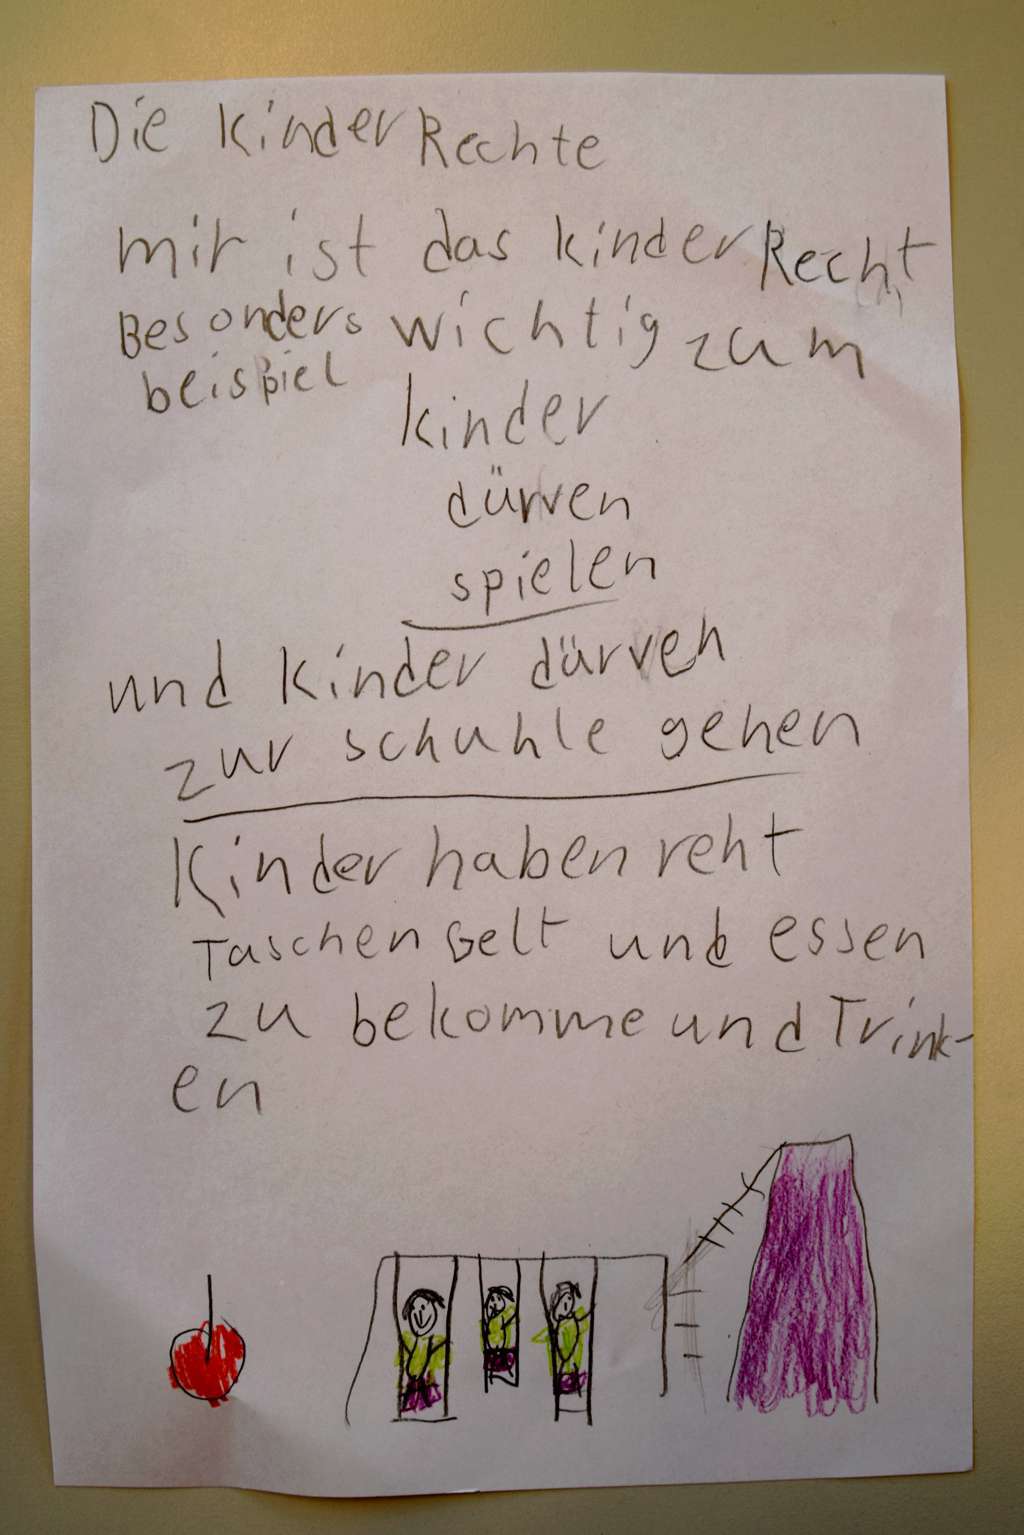 Die kinder Rechte
mir ist das kinder Recht
Besonders wichtig zum
beispiel
kinder
dürven
spielen
und kinder dürven
zur schuhle gehen
Kinder haben reht
TaschenGelt und essen
zu bekomme und Trink-
en